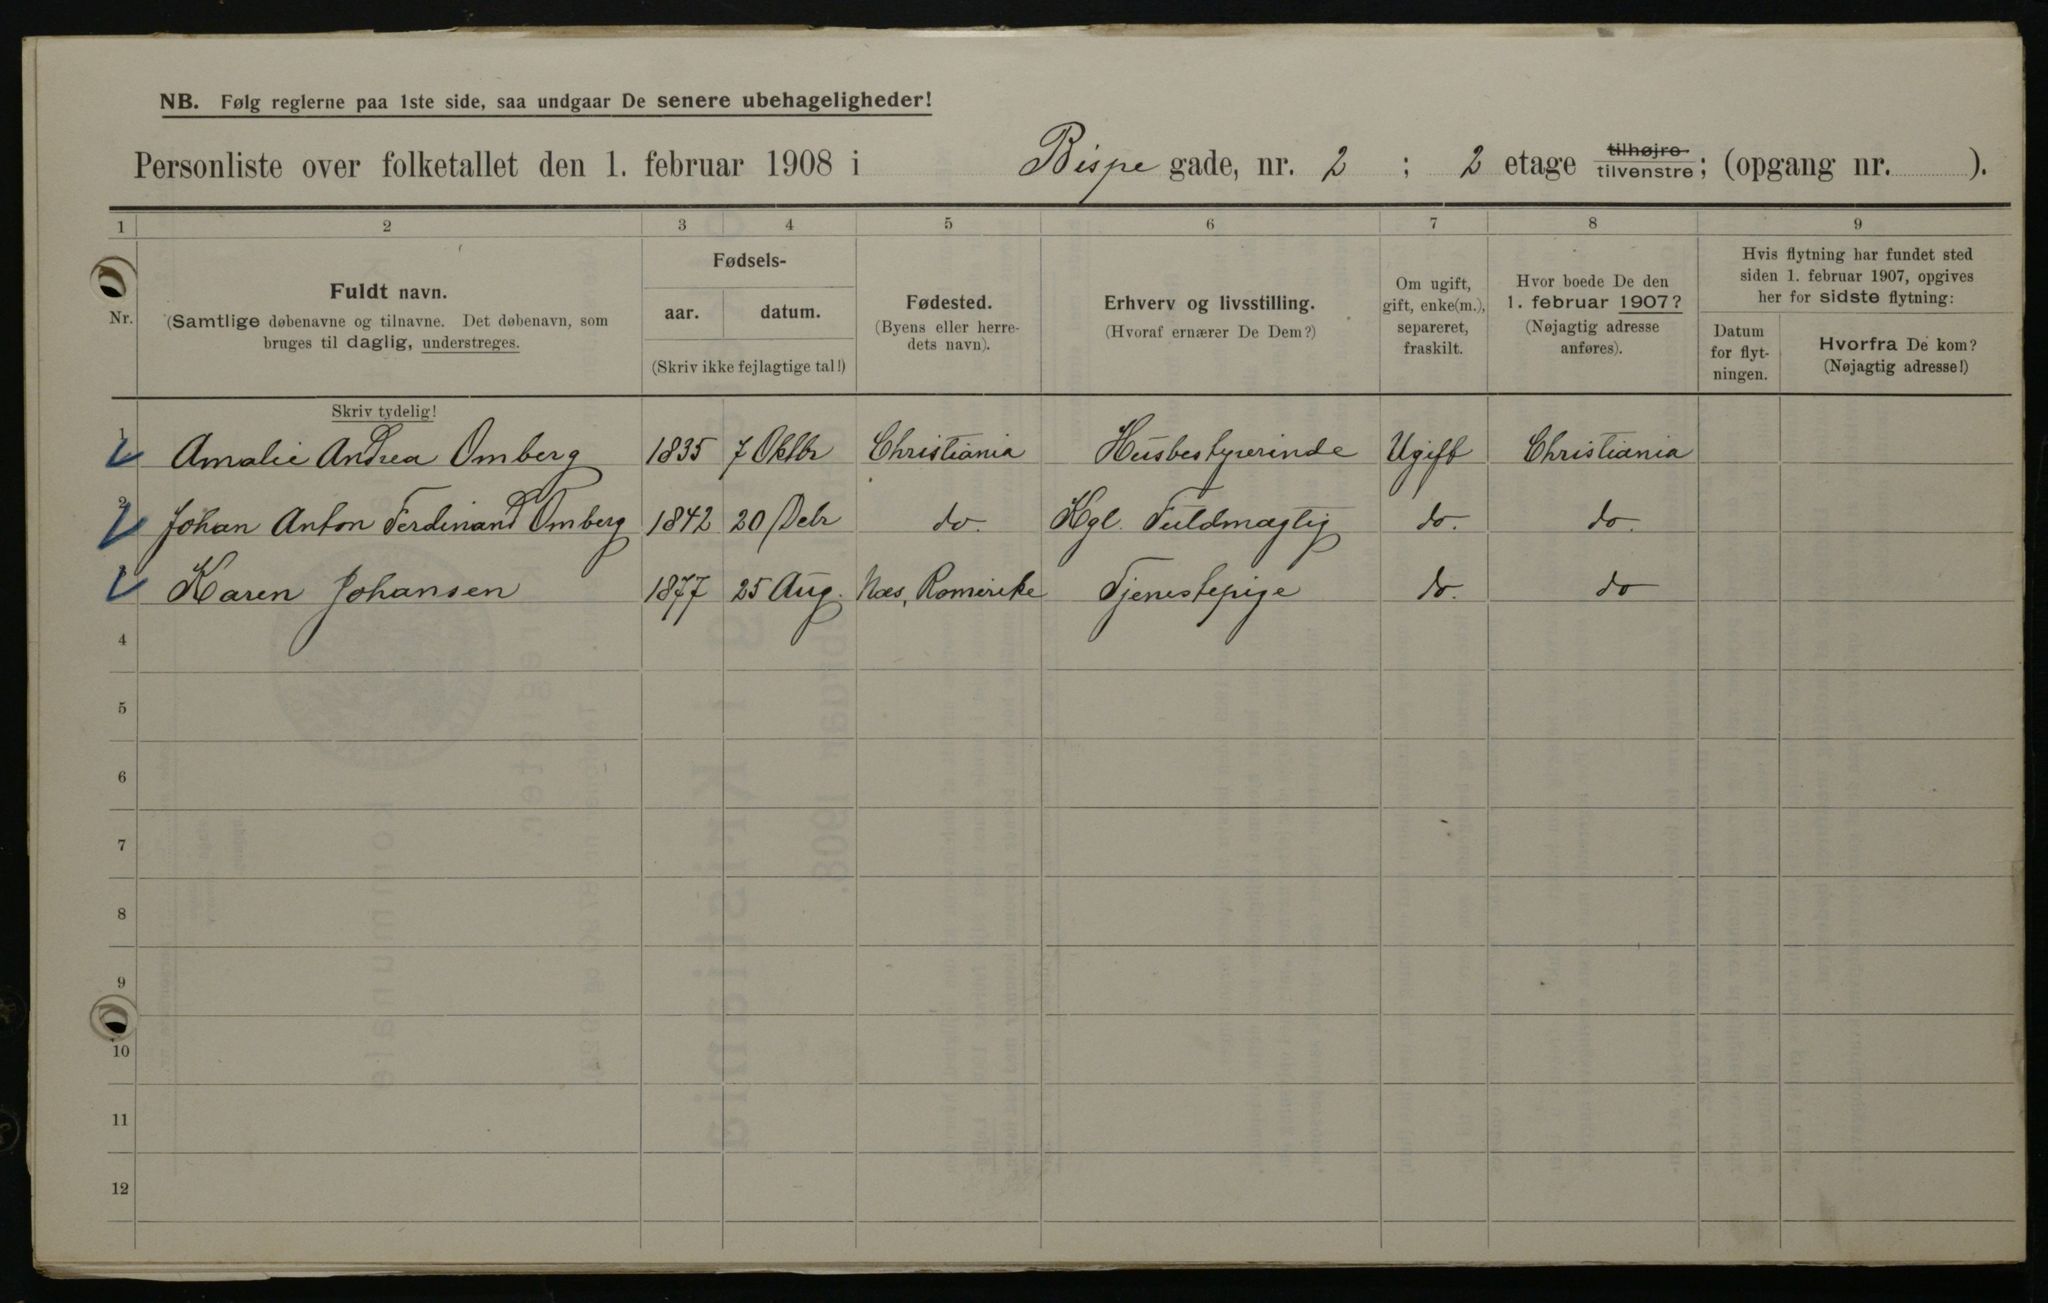 NB. Følg reglerne paa 1ste side, saa undgaar De senere ubehageligheder!
Personliste over folketallet den 1. februar 1908 i Bispe gade, nr. 2 ; 2 etage tilhøjre tilvenstre; (opgang nr. ).
1 2 3 4 5 6 7 8 9
Nr.
Fuldt navn.
(Samtlige døbenavne og tilnavne. Det døbenavn, som
bruges til daglig, understreges.
Fødsels-
aar. datum.
(Skriv ikke fejlagtige tal!)
Fødested.
(Byens eller herre-
dets navn).
Erhverv og livsstilling.
(Hvoraf ernærer De Dem?)
Om ugift,
gift, enke(m.),
separeret,
fraskilt.
Hvor boede De den
1. februar 1907?
(Nøjagtig adresse
anføres).
Hvis flytning har fundet sted
siden 1. februar 1907, opgives
her for sidste flytning:
Datum
for flyt-
ningen.
Hvorfra De kom?
(Nøjagtig adresse!)
Skriv tydelig!
1 Amalie Andrea Omberg 1835 7 Oktbr Christiania Husbestyrerinde Ugift Christiania
2 Johan Anton Ferdinand Omberg 1842 20 Debr do. Kgl. Fuldmægtig do. do.
Karen Johansen 1877 25 Aug. Næs, Romerike Tjenestepige do. do
4
5
6
7
8
9
10
11
12